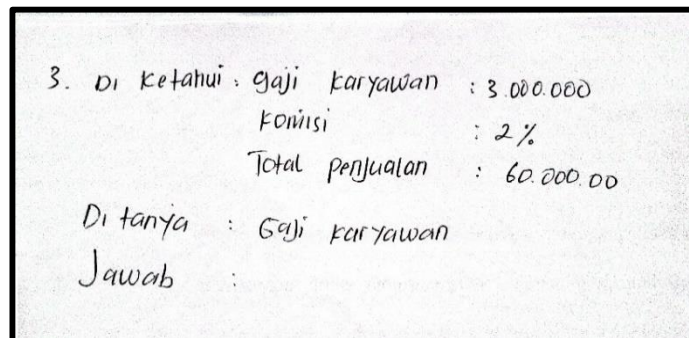 3. Di Ketahui : gaji karyawan : 3.000.000
Komisi : 2%
Total penjualan : 60.000.00
Di tanya : Gaji karyawan
Jawab :